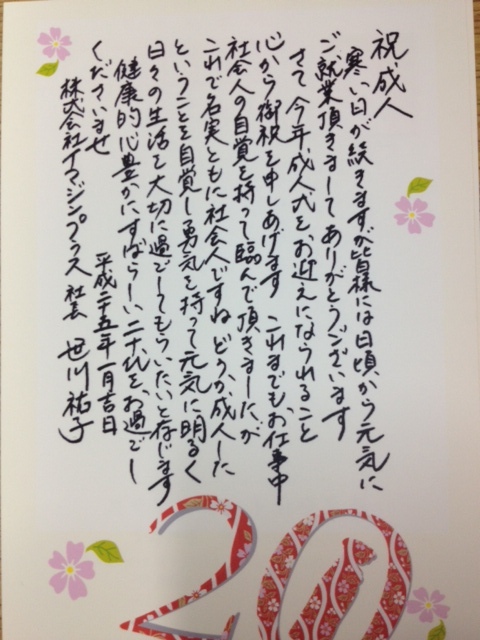 祝成人
寒い日が続きますが皆様には日頃から元気に
ご就業頂きましてありがとうございます
さて今年成人式をお迎えになられること
心から御祝を申しあげます これまでもお仕事中
社会人の自覚を持って臨んで頂きましたが
これで名実ともに社会人ですね どうか成人した
ということを自覚し勇気を持って元気に明るく
日々の生活を大切に過ごしてもらいたいと存じます
健康的に心豊かにすばらしい二十代をお過ごし
くださいませ
平成二十五年一月吉日
株式会社イマジンプラス 社長 笹川祐子
20